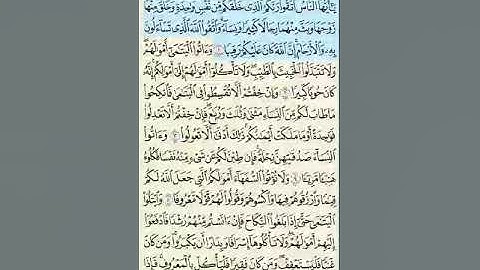 يَٰٓأَيُّهَا ٱلنَّاسُ ٱتَّقُوا۟ رَبَّكُمُ ٱلَّذِى خَلَقَكُم مِّن نَّفْسٍ وَٰحِدَةٍ وَخَلَقَ مِنْهَا
زَوْجَهَا وَبَثَّ مِنْهُمَا رِجَالًا كَثِيرًا وَنِسَآءً ۚ وَٱتَّقُوا۟ ٱللَّهَ ٱلَّذِى تَسَآءَلُونَ
بِهِۦ وَٱلْأَرْحَامَ ۚ إِنَّ ٱللَّهَ كَانَ عَلَيْكُمْ رَقِيبًا ١ وَءَاتُوا۟ ٱلْيَتَٰمَىٰٓ أَمْوَٰلَهُمْ ۖ
وَلَا تَتَبَدَّلُوا۟ ٱلْخَبِيثَ بِٱلطَّيِّبِ ۖ وَلَا تَأْكُلُوٓا۟ أَمْوَٰلَهُمْ إِلَىٰٓ أَمْوَٰلِكُمْ ۚ إِنَّهُۥ
كَانَ حُوبًا كَبِيرًا ٢ وَإِنْ خِفْتُمْ أَلَّا تُقْسِطُوا۟ فِى ٱلْيَتَٰمَىٰ فَٱنكِحُوا۟
مَا طَابَ لَكُم مِّنَ ٱلنِّسَآءِ مَثْنَىٰ وَثُلَٰثَ وَرُبَٰعَ ۖ فَإِنْ خِفْتُمْ أَلَّا تَعْدِلُوا۟
فَوَٰحِدَةً أَوْ مَا مَلَكَتْ أَيْمَٰنُكُمْ ۚ ذَٰلِكَ أَدْنَىٰٓ أَلَّا تَعُولُوا۟ ٣ وَءَاتُوا۟
ٱلنِّسَآءَ صَدُقَٰتِهِنَّ نِحْلَةً ۚ فَإِن طِبْنَ لَكُمْ عَن شَىْءٍ مِّنْهُ نَفْسًا فَكُلُوهُ
هَنِيٓـًٔا مَّرِيٓـًٔا ٤ وَلَا تُؤْتُوا۟ ٱلسُّفَهَآءَ أَمْوَٰلَكُمُ ٱلَّتِى جَعَلَ ٱللَّهُ لَكُمْ
قِيَٰمًا وَٱرْزُقُوهُمْ فِيهَا وَٱكْسُوهُمْ وَقُولُوا۟ لَهُمْ قَوْلًا مَّعْرُوفًا ٥ وَٱبْتَلُوا۟
ٱلْيَتَٰمَىٰ حَتَّىٰٓ إِذَا بَلَغُوا۟ ٱلنِّكَاحَ فَإِنْ ءَانَسْتُم مِّنْهُمْ رُشْدًا فَٱدْفَعُوٓا۟
إِلَيْهِمْ أَمْوَٰلَهُمْ ۖ وَلَا تَأْكُلُوهَآ إِسْرَافًا وَبِدَارًا أَن يَكْبَرُوا۟ ۚ وَمَن كَانَ
غَنِيًّا فَلْيَسْتَعْفِفْ ۖ وَمَن كَانَ فَقِيرًا فَلْيَأْكُلْ بِٱلْمَعْرُوفِ ۚ فَإِذَا